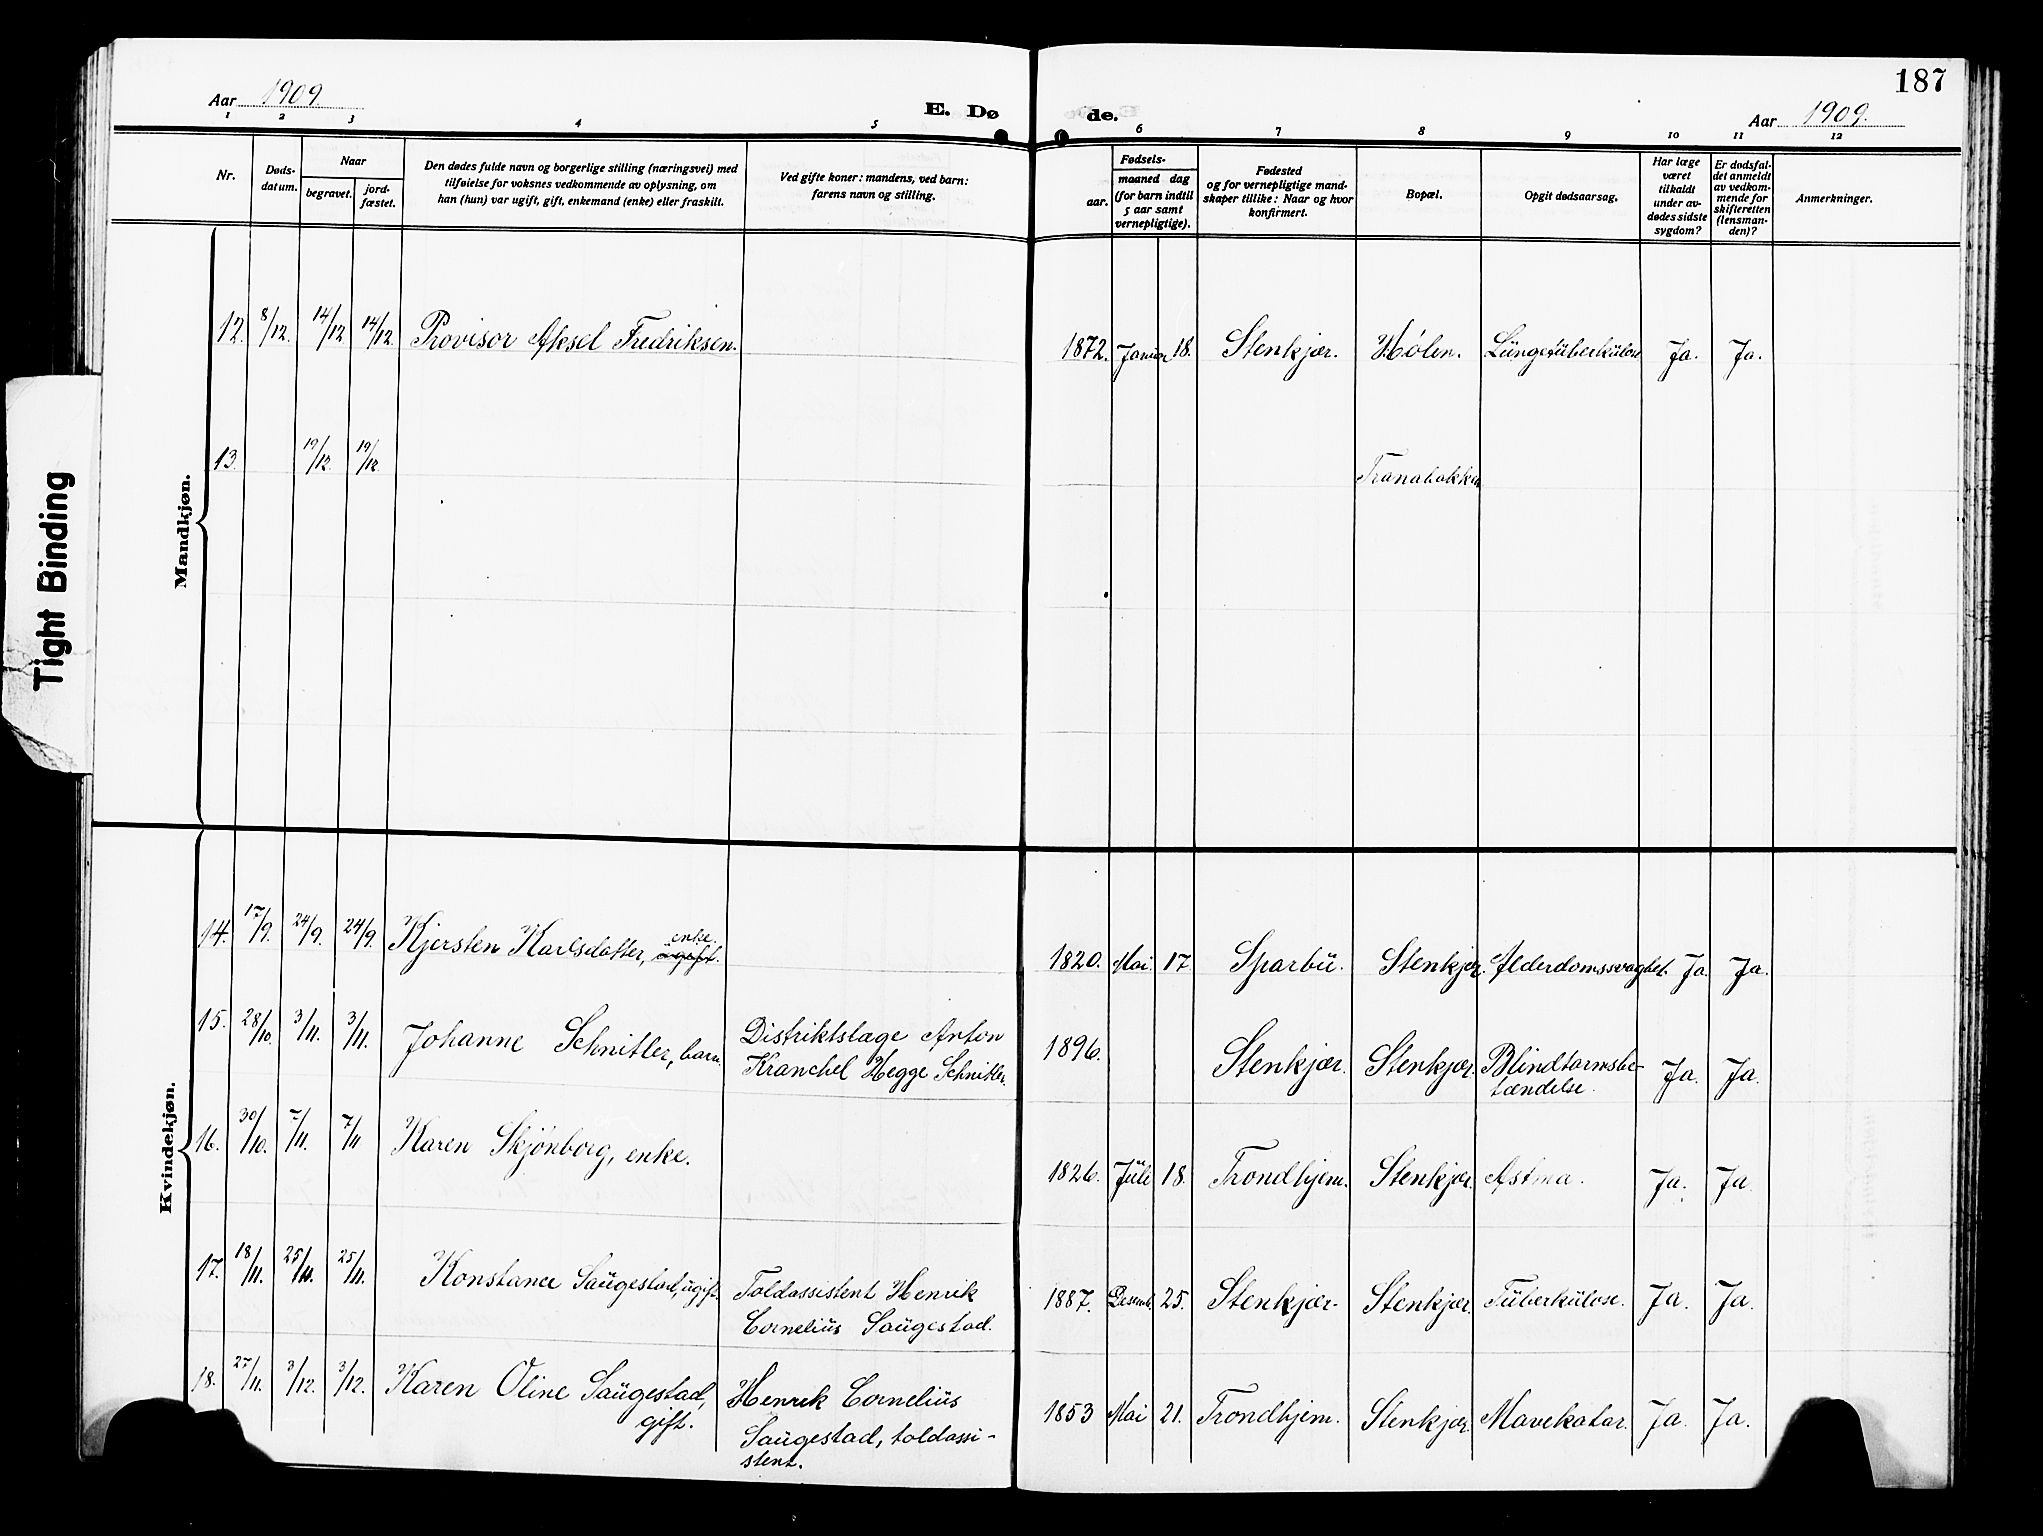 187
Aar 1909.
E. Døde.
Aar 1909.
1 2 3 4 5 6 7 8 9 10 11 12
Nr.
Døds-
datum.
Naar
begravet.
jord-
fæstet.
Den dødes fulde navn og borgerlige stilling (næringsvei) med
tilføielse for voksnes vedkommende av oplysning, om
han (hun) var ugift, gift, enkemand (enke) eller fraskilt.
Ved gifte koner: mandens, ved barn:
farens navn og stilling.
Fødsels-
aar.
maaned dag
(for barn indtil
5 aar samt
vernepligtige).
Fødested
og for vernepligtige mand-
skaper tillike: Naar og hvor
konfirmert.
Bopæl.
Opgit dødsaarsag.
Har læge
været
tilkaldt
under av-
dødes sidste
sygdom?
Er dødsfal-
det anmeldt
av vedkom-
mende for
skifteretten
(lensman-
den)?
Anmerkninger.
Tight Binding
Mandkjøn.
12. 8/12. 14/12 14/12. Provisor Aksel Fredriksen. 1872. Januar 18. Stenkjær. Hølen. Lungetüberkülose Ja. Ja.
13. 19/12. 19/12. Tranabakken
Kvindekjøn.
14. 17/9. 24/9. 24/9. Kjersten Karlsdatter, ugift. enke. 1820. Mai 17 Sparbü. Stenkjær. Alderdomssvaghet. Ja Ja.
15. 28/10. 3/11. 3/11. Johanne Schnitler, barn. Distriktslæge Anton
Kranchel Hegge Schnitler. 1896. Stenkjær. Stenkjær. Blindtarmsbe-
tændelse. Ja. Ja.
16. 30/10. 7/11. 7/11 Karen Skjønborg, enke. 1826. Jüli 18. Trondhjem. Stenkjær. Astma. Ja. Ja.
17. 18/11. 25/11. 25/11. Konstance Saügestad, ugift. Toldassistent Henrik
Corneliüs Saügestad. 1887. Desemb. 25. Stenkjær. Stenkjær. Tüberkülose. Ja. Ja.
18. 27/11. 3/12. 3/12. Karen Oline Saügestad,
gift. Henrik Corneliüs
Saügestad, toldassi-
stent. 1853 Mai 21. Trondhjem. Stenkjær. Mavekatar. Ja. Ja.